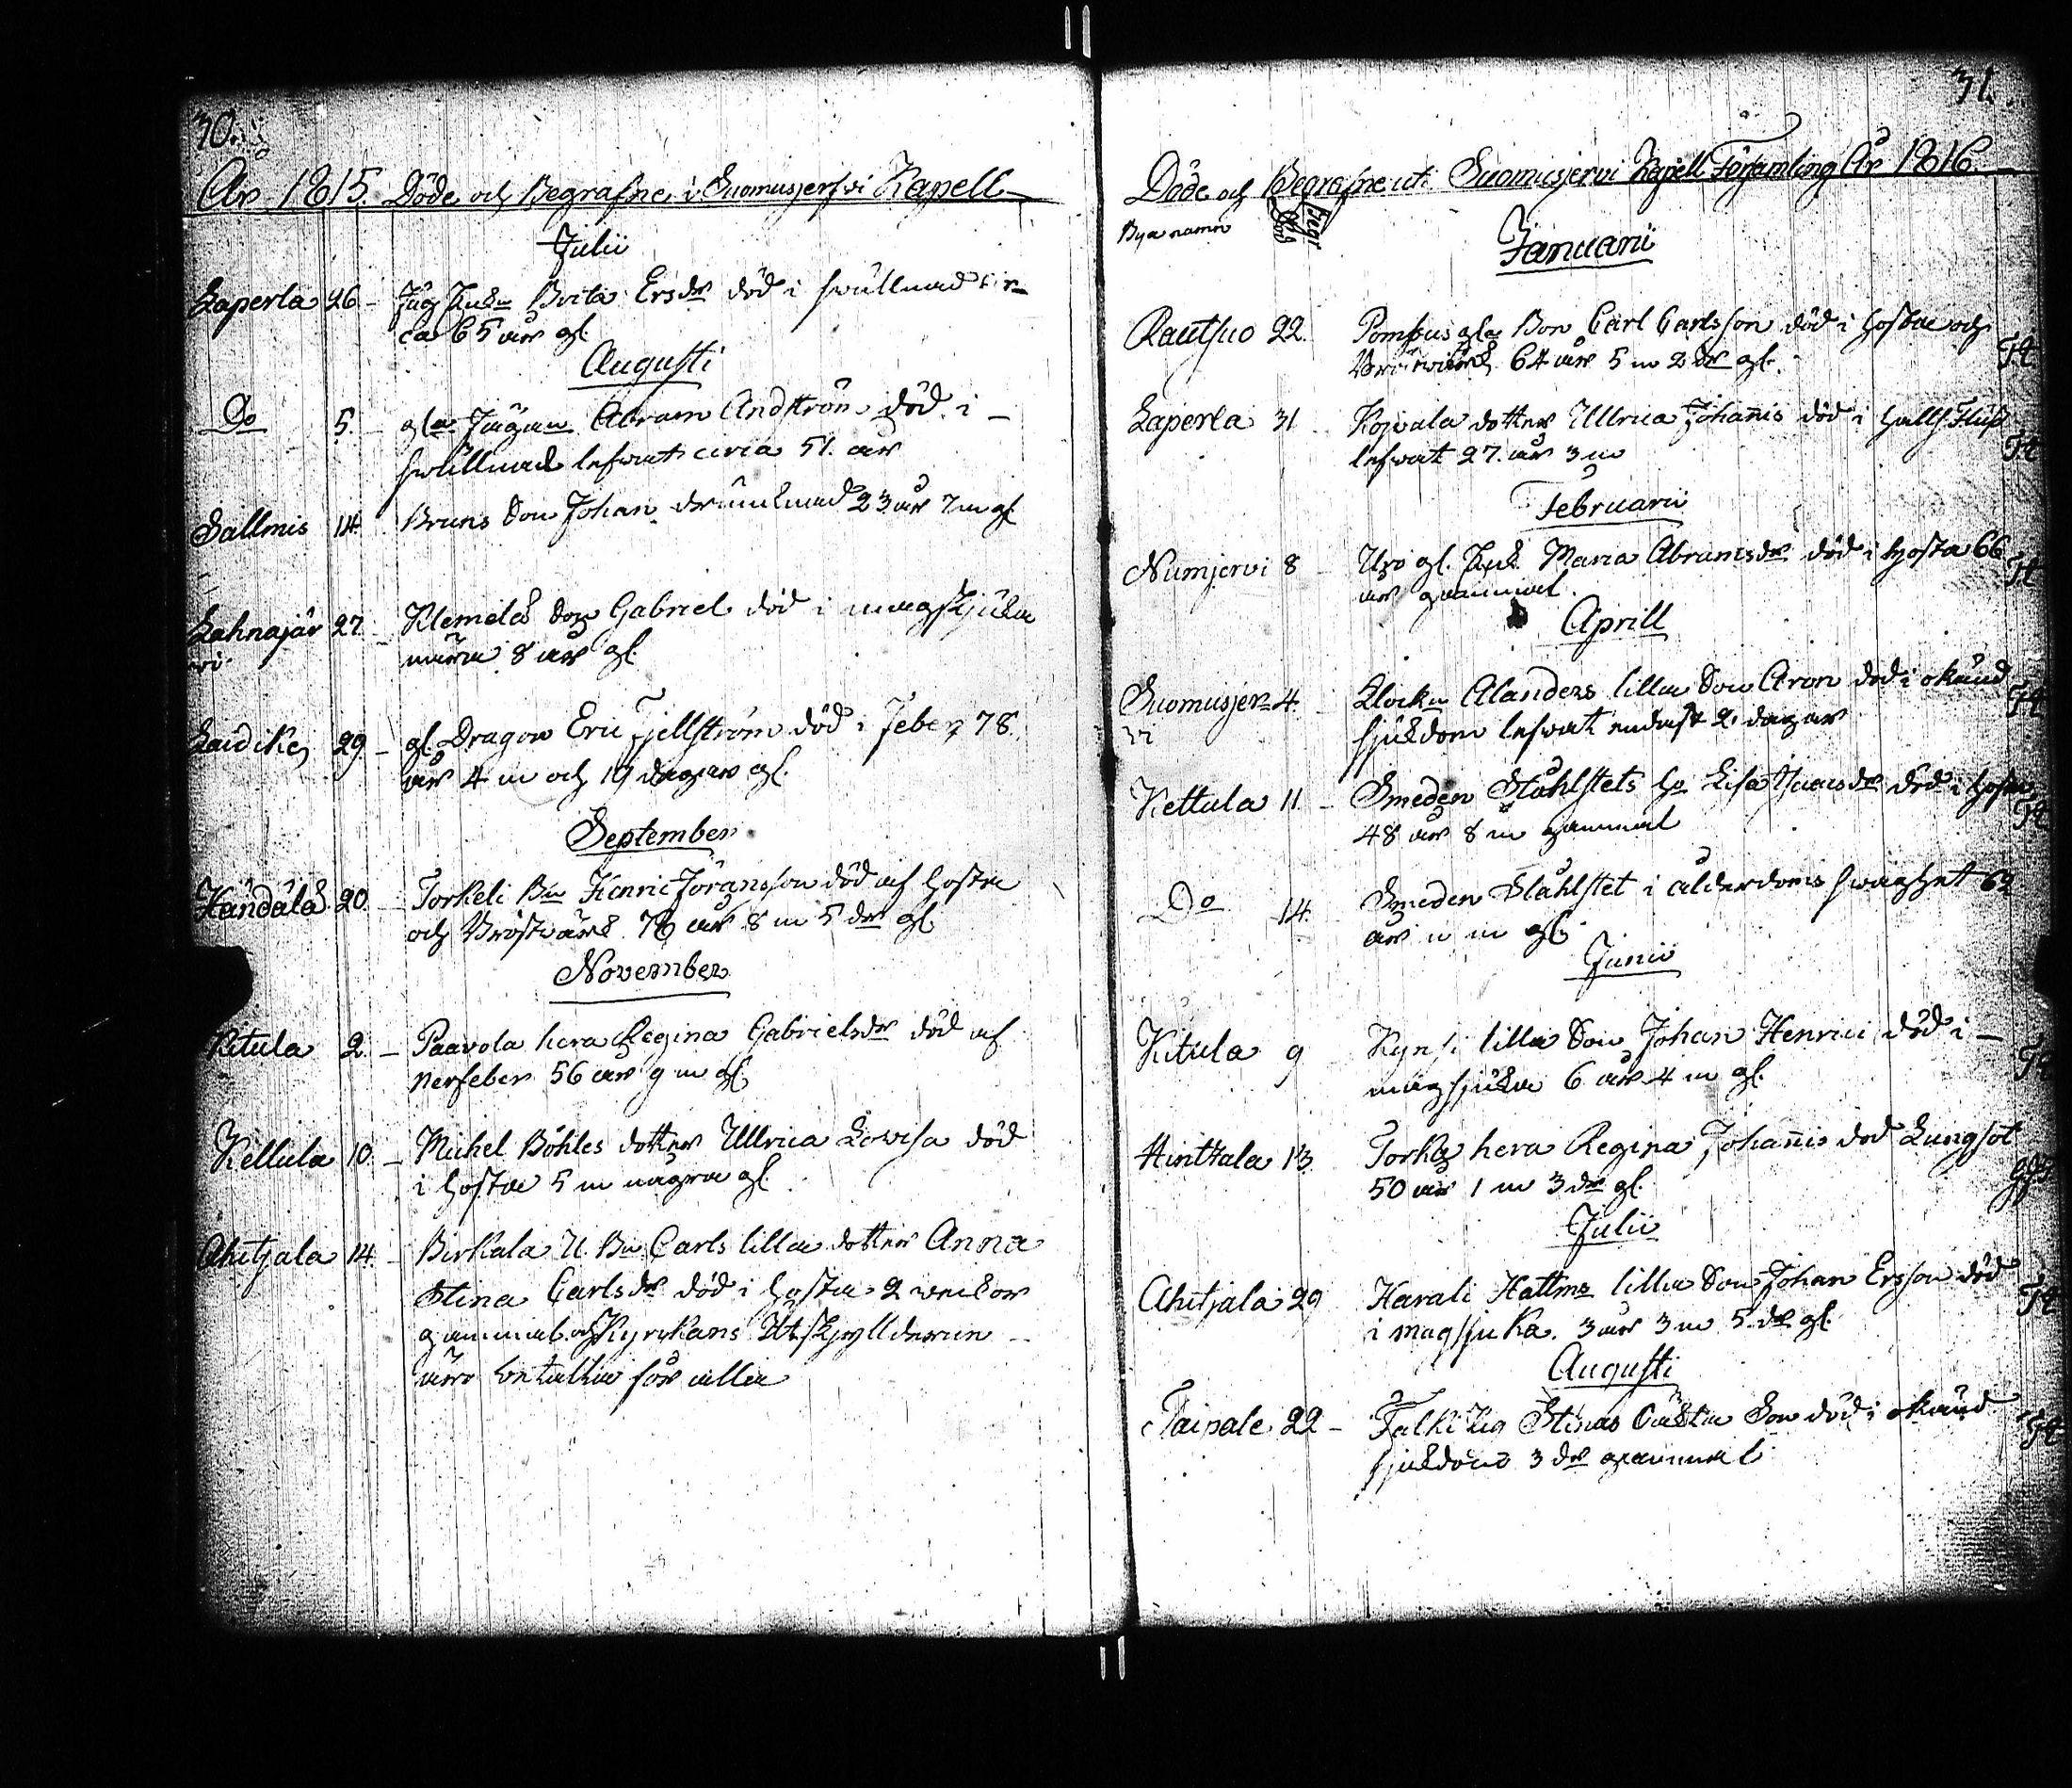 30.
År 1815. Döde och Begrafne i Suomusjerfvi Kapell
Julii
Laperla 26 - Jäg Enka Brita Ersdr död i swullnad cir
ca 65 år gl.
Augusti
Do 5. gla Jägarn Abram Andström död i
swullnad lefwat circa 51. år
Sallmis 14. Bruns Son Johan drunknad 23 år 7 m gl
Lahnajär 27. Klemelä Son Gabriel död i magsjuka
wi. 8 år gl.
Laidike 29 - gl. Dragon Eric Fjellström död i Feber 78.
år 4 m och 19 dagar gl.
September
Händälä 20. Torkeli Bn Henric Göransson död af hosta
och Bröstvärk 76 år 8 m 5 dr gl
November
Kitula 2. - Paavola hera Regina Gabrielsdr död af
nerfeber 56 år 9 m gl.
Kettula 10. - Michel Böhles dotter Ullrica Lovisa död
i hosta 5 m några gl.
Ahitjala 14. - Birkala U. Bn Carls lilla dotter Anna
Stina Carlsdr död i hosta 2 weckor
gammal och Kyrckans Utskyllderne
äro betallta för alla
31.
Döde och Begrafne uti Suomusjervi Kapell Församling År 1816.
Bya namn Död Begr
Januarii
Rautsuo 22. gla Bon Carl Carlsson död i hosta och
64 år 5 m 2 dr gl.
Laperla 31 dotter Ullrica Johannis död i
lefwat 27. år 3 m
Februarii
Numjervi 8 Uro gl. Enk. Maria Abramsdr död i hosta 66
år gammal.
Aprill
Suomusjer 4. Klockn Alanders lilla Son Aron död i okänd
vi sjukdom lefwat endast 2 dagar
Kettula 11 - Smeden Stählstets ho Lisa Isacsdr död i hosta
48 år 8 m gammal
Do 14. Smeden Stählstet i ålderdoms swaghet 62
år 11 m gl.
Junii
Kitula 9 Kynsi lilla Son Johan Henrici död i
magsjuka 6 år 4 m gl.
Hinttala 13. hera Regina Johannis död Lungsot
50 år 1 m 3 dr gl.
Julii
Ahitjala 29 Harali lilla Son Johan Ersson död
i magsjuka. 3 år 3 m 5 dr gl.
Augusti
Taipale 22 - Falki Stinas Son död i okänd
sjukdom 3 dr gammal